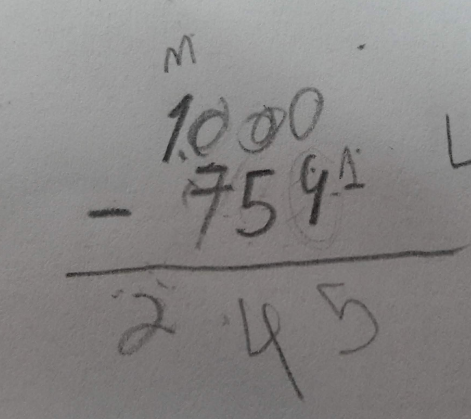 M
1000
- 759 1
2 4 5
L